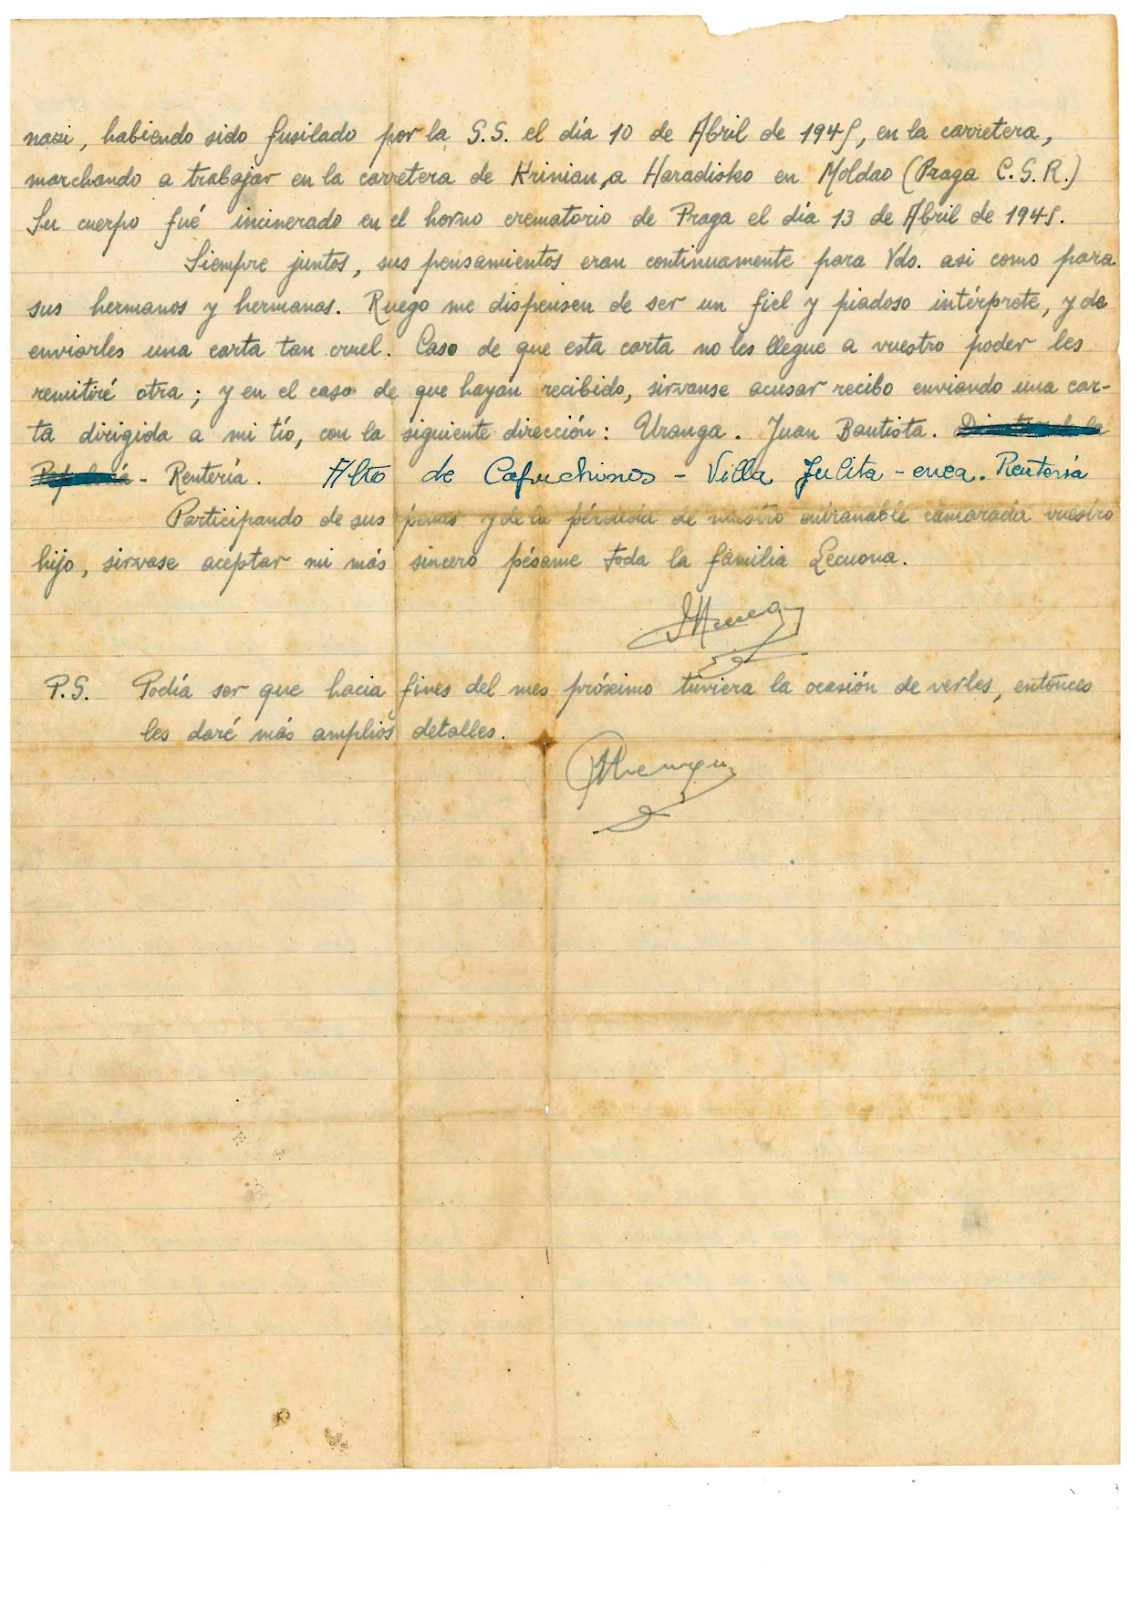 nazi, habiendo sido fusilado por la S.S. el día 10 de Abril de 1945, en la carretera,
marchando a trabajar en la carretera de Krinian, a Haradisko en Moldao (Praga C.S.R.)
Su cuerpo fué incinerado en el horno crematorio de Praga el día 13 de Abril de 1945.
Siempre juntos, sus pensamientos eran continuamente para Vds. asi como para
sus hermanos y hermanas. Ruego me dispensen de ser un fiel y piadoso intérprete, y de
enviarles una carta tan cruel. Caso de que esta carta no les llegue a vuestro poder les
remitiré otra; y en el caso de que hayan recibido, sirvanse acusar recibo enviando una car-
ta dirigida a mi tío, con la siguiente dirección: Uranga. Juan Bautista.
- Rentería. Alto de Capuchinos - Villa Julita - enea. Rentería
Participando de sus penas y de la pérdida de nuestro entranable camarada vuestro
hijo, sirvase aceptar mi más sincero pésame toda la familia Lecuona.
P.S. Podía ser que hacia fines del mes próximo tuviera la ocasión de verles, entonces
les daré más amplios detalles.